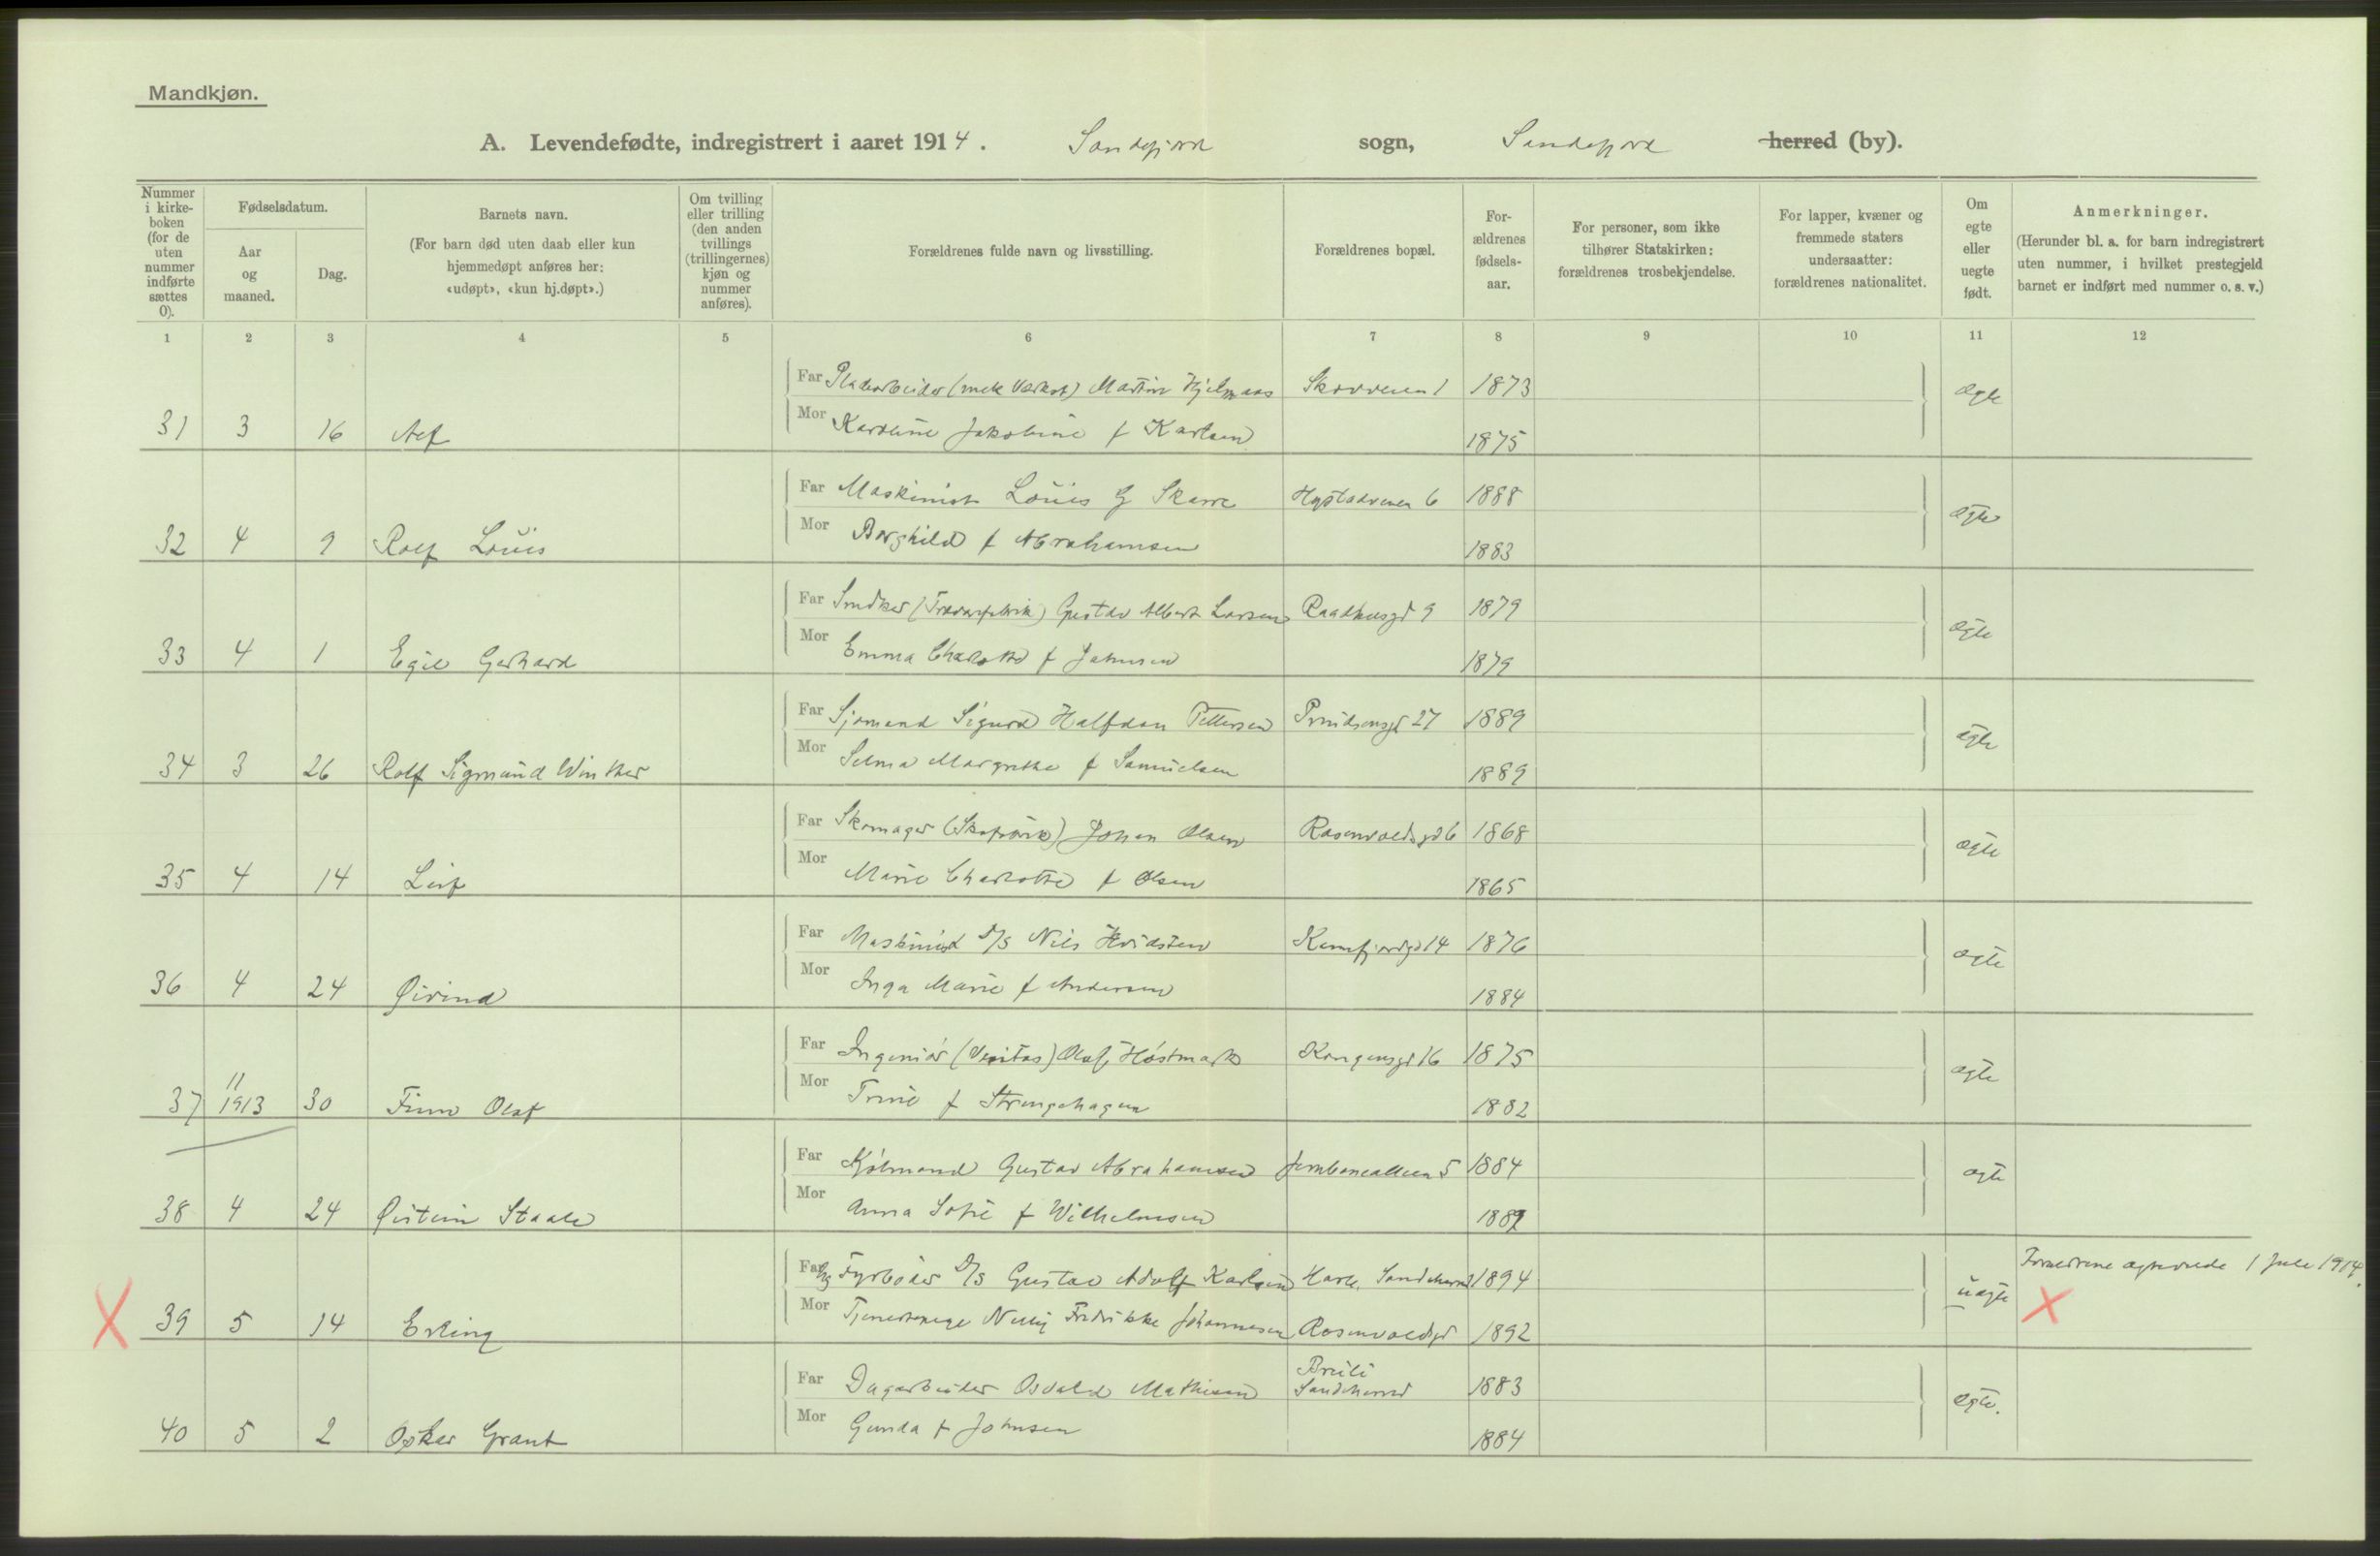 Mandkjøn.
A. Levendefødte, indregistrert i aaret 1914. Sandefjord sogn, Sandefjord herred (by).
Nummer i kirke-boken (for de uten nummer indførte sættes 0).
Fødselsdatum.
Aar og maaned.
Dag.
Barnets navn.
(For barn død uten daab eller kun hjemmedøpt anføres her: «udøpt», «kun hj.døpt».)
Om tvilling eller trilling (den anden tvillings (trillingernes) kjøn og nummer anføres).
Forældrenes fulde navn og livsstilling.
Forældrenes bopæl.
For-ældrenes fødsels-aar.
For personer, som ikke tilhører Statskirken: forældrenes trosbekjendelse.
For lapper, kvæner og fremmede staters undersaatter: forældrenes nationalitet.
Om egte eller uegte født.
Anmerkninger.
(Herunder bl. a. for barn indregistrert uten nummer, i hvilket prestegjeld barnet er indført med nummer o. s. v.)
1 2 3 4 5 6 7 8 9 10 11 12
Far Pladearbeider (mek Værkst) Martin Hjelmaas 1873 ægte
31 3 16 Mor Karoline Jakobine f Karlsen 1875
Far Maskinist Louis G Skarre 6 1888 ægte
32 4 9 Rolf Louis Mor Borghild f Abrahamsen 1883
Far Gustav Albert Larsen Raadhusgd 9 1879 ægte
33 4 1 Egil Gerhard Mor Emma Charlotte f Johnsen 1879
Far Sjømand Sigurd Halfdan Pettersen Prindsensgd 27 1889 ægte
34 3 26 Rolf Sigmund Winther Mor Selma Margrethe f Samuelsen 1889
Far Skomager (Skofabrik) Johan Olsen Rosenvoldsgd 6 1868 ægte
35 4 14 Leif Mor Marie Charlotte f Olsen 1865
Far Maskinist D/S Nils Hvidsten 14 1876 ægte
36 4 24 Øivind Mor Inga Marie f Andersen 1884
Far Ingeniør (Veritas) Olaf Høstmark Kongensgd 16 1875 ægte
37 11 1913 30 Finn Olaf Mor Trine f Strengehagen 1882
Far Kjølmand Gustav Abrahamsen Jernbanealleen 5 1884 ægte
38 4 24 Øistein Staale Mor Anna Sofie f Wilhelmsen 1889
Far Fyrbøder D/S Gustav Adolf Karlsen Sandeherred 1894 uægte Forældrene ægteviede 1 Juli 1914.
39 5 14 Erling Mor Tjenestepige Nelly Fredrikke Johannesen Rosenvoldsgd 1892
Far Dagarbeider Osvald Mathisen Breili Sandeherred 1883 ægte.
40 5 2 Oskar Grant Mor Gunda f Johnsen 1884